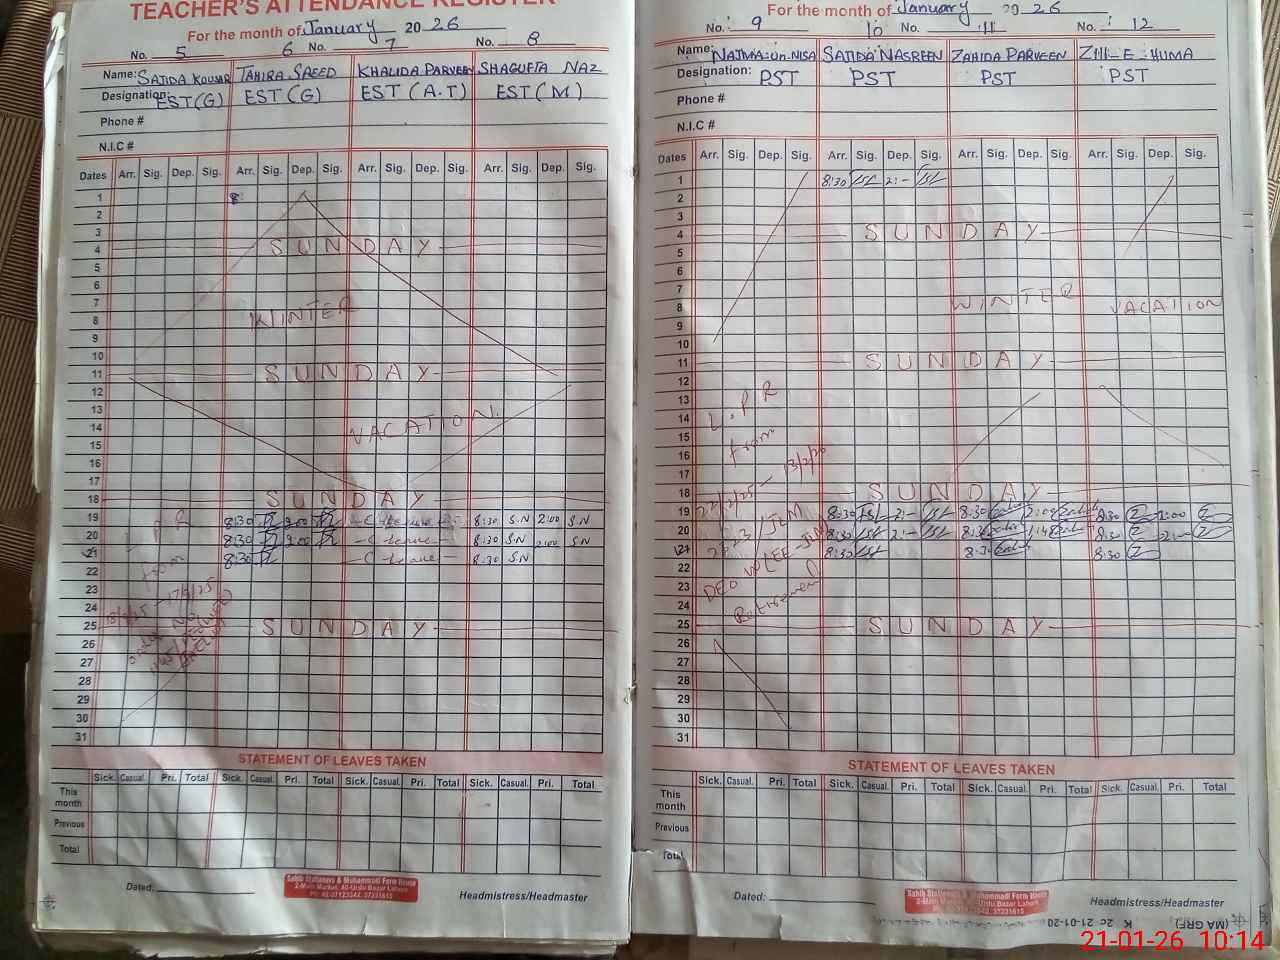 TEACHER'S ATTENDANCE REGISTER
For the month of January 2026
No. 5 6 No. 7 No. 8
Name: SAJIDA KOUSAR TAHIRA SAEED KHALIDA PARVEEN SHAGUFTA NAZ
Designation: EST(G) EST(G) EST(A.T) EST(M)
Phone #
N.I.C #
Dates Arr. Sig. Dep. Sig. Arr. Sig. Dep. Sig. Arr. Sig. Dep. Sig. Arr. Sig. Dep. Sig.
1 8
2
3
4 SUNDAY
5
6
7
8 WINTER
9
10
11 SUNDAY
12
13
14 VACATION.
15
16
17
18 SUNDAY
19 8:30 2:00 C-leave 8:30 S.N 2:00 S.N
20 8:30 2:00 C-leave 8:30 S.N 2:00 S.N
21 8:30 C-leave 8:30 S.N
22
23
24
25 SUNDAY
26
27
28
29
30
31
L P R
from
STATEMENT OF LEAVES TAKEN
Sick. Casual. Pri. Total Sick. Casual. Pri. Total Sick. Casual. Pri. Total Sick. Casual. Pri. Total
This month
Previous
Total
Dated:
Sabib Stationers & Muhammadi Form House
2-Main Market, 40-Urdu Bazar Lahore
Headmistress/Headmaster
For the month of January 2026
No. 9 10 No. 11 No. 12
Name: NAJMA-UN-NISA SAJIDA NASREEN ZAHIDA PARVEEN ZILL-E-HUMA
Designation: PST PST PST PST
Phone #
N.I.C #
Dates Arr. Sig. Dep. Sig. Arr. Sig. Dep. Sig. Arr. Sig. Dep. Sig. Arr. Sig. Dep. Sig.
1 8:30 2:-
2
3
4 SUNDAY
5
6
7
8 WINTER VACATION
9
10
11 SUNDAY
12
13
14
15
16
17
18 SUNDAY
19 8:30 2:- 8:30 2:00 8:30 2:00
20 8:30 2:- 8:30 1:48 8:30 2:-
21 8:30 8:30 8:30
22
23
24
25 SUNDAY
26
27
28
29
30
31
L.P.R
from
Retirement
STATEMENT OF LEAVES TAKEN
Sick. Casual. Pri. Total Sick. Casual. Pri. Total Sick. Casual. Pri. Total Sick. Casual. Pri. Total
This month
Previous
Total
Dated:
Sabib Stationers & Muhammadi Form House
2-Main Market, 40-Urdu Bazar Lahore
Headmistress/Headmaster
21-01-26 10:14